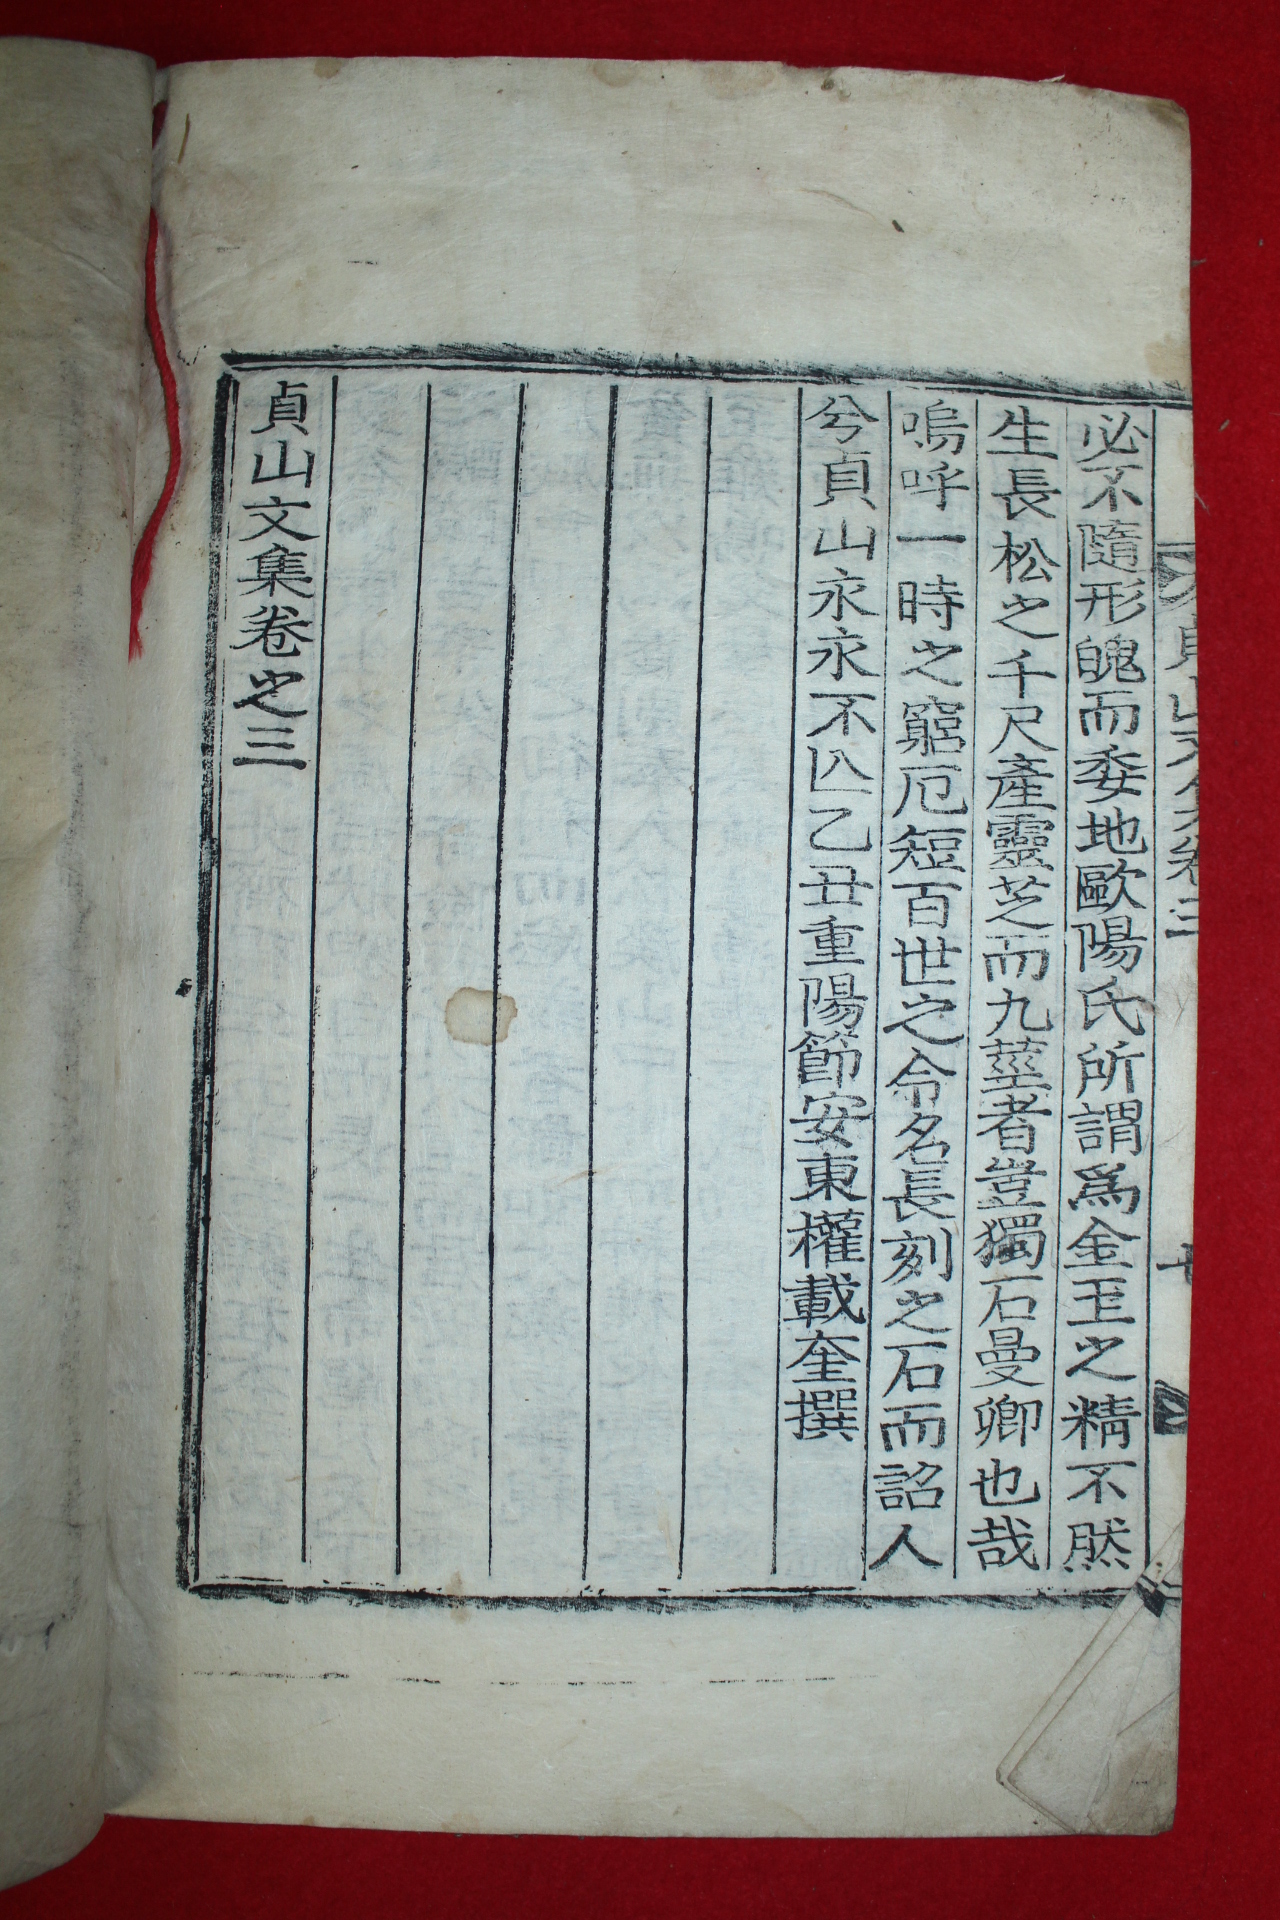 貞山文集卷三
必不隨形魄而委地歐陽氏所謂爲金玉之精不然
生長松之千尺產靈芝而九莖者豈獨石曼卿也哉
嗚呼一時之窮厄短百世之令名長刻之石而詔人
兮貞山永永不亾乙丑重陽節安東權載奎撰
貞山文集卷之三